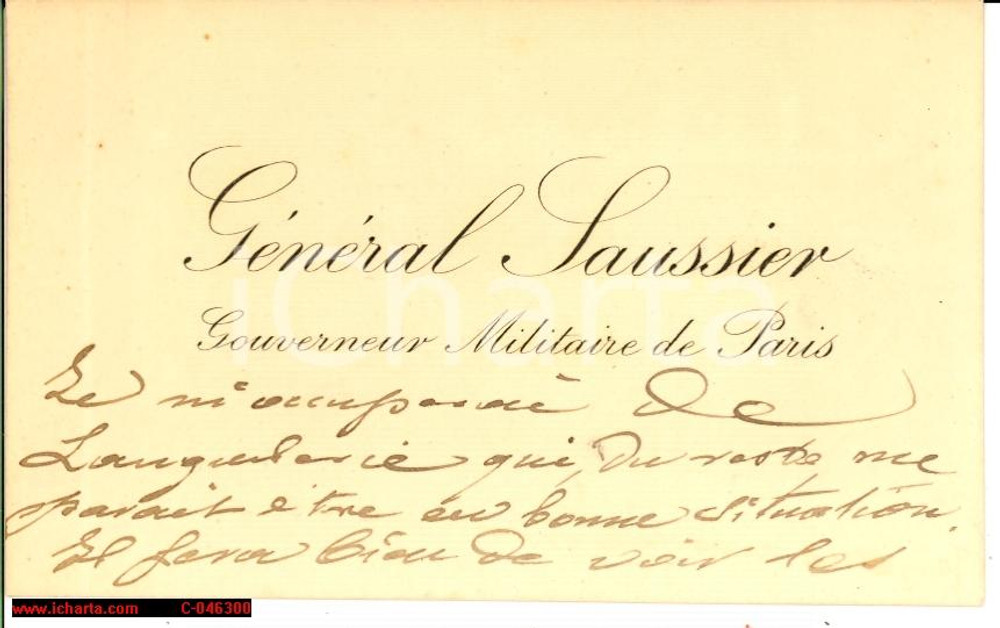 Général Saussier
Gouverneur Militaire de Paris
iCharta
Je m'occuperai de
Languelerie qui, du reste me
parait être en bonne situation.
Il fera bien de voir les
www.icharta.com C-046300